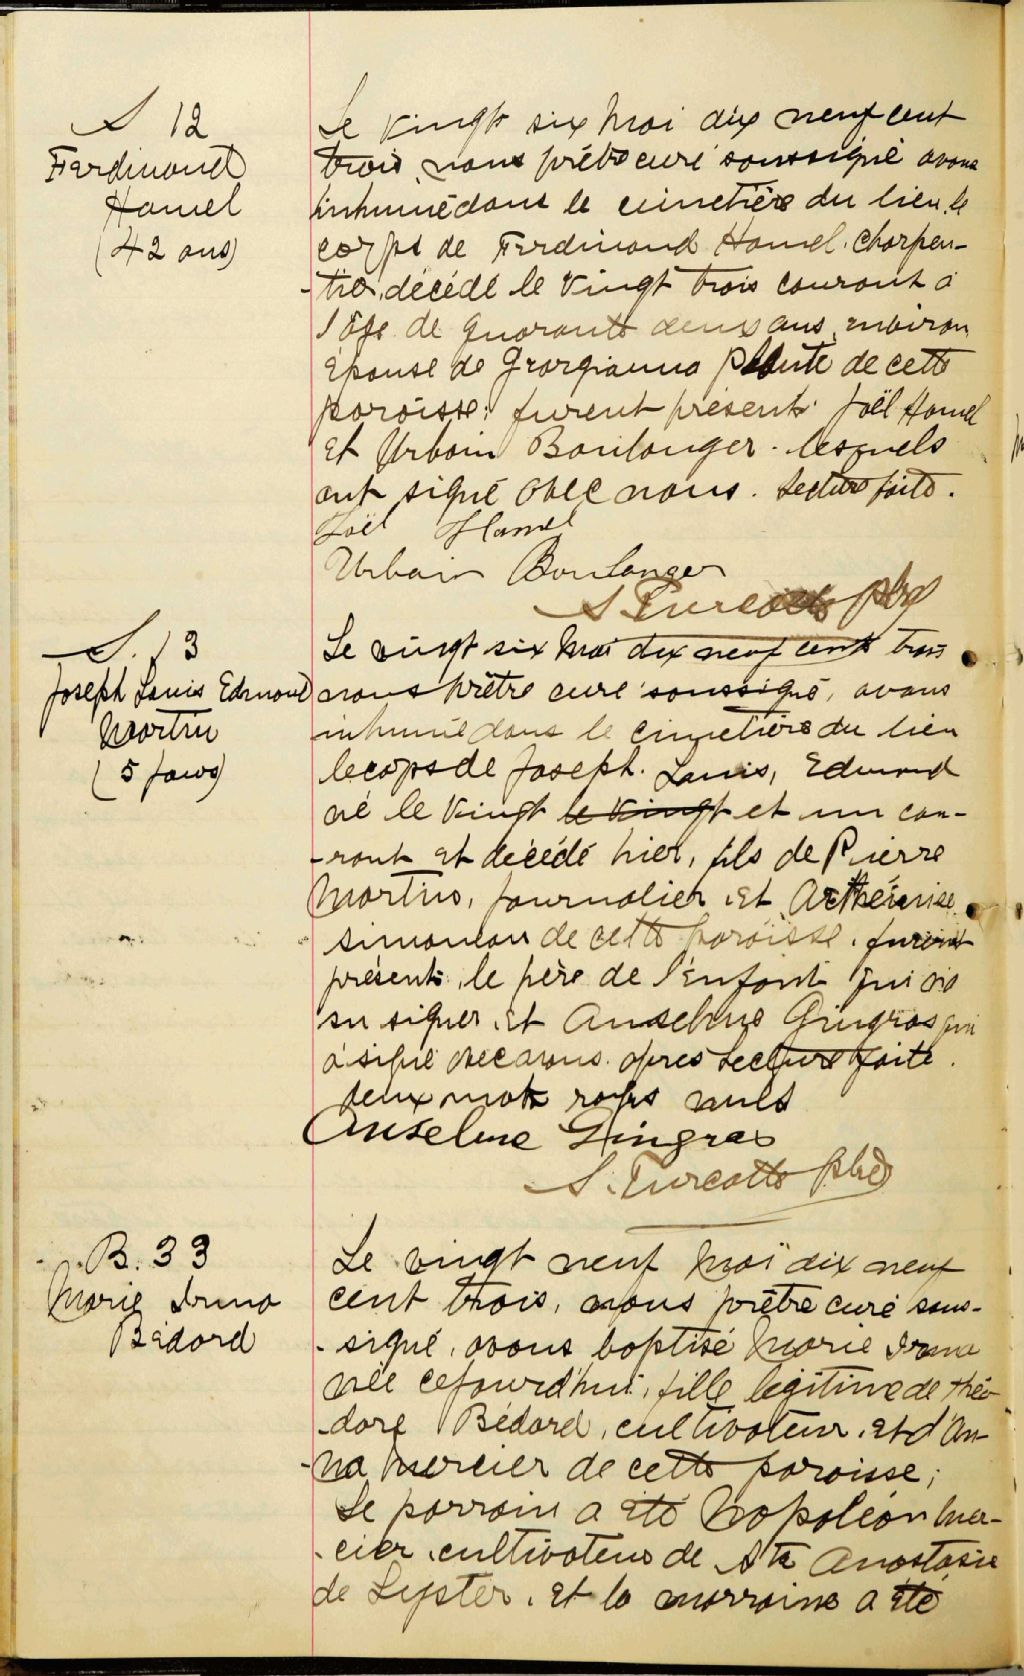 S 12
Ferdinand
Hamel
(42 ans)
Le vingt six Mai dix neuf cent
trois, nous prêtre curé soussigné avons
inhumé dans le cimetière du lieu, le
corps de Ferdinand Hamel, charpen-
-tier, décédé le vingt trois courant à
l'âge de quarante deux ans, environ
Epouse de Georgianna Plante de cette
paroisse: furent présents Joël Hamel
et Urbain Boulanger. lesquels
ont signé avec nous. Lecture faite.
Joël Hamel
Urbain Boulanger
S. Turcotte ptre
S. 13
Joseph Louis Edmond
Martin
(5 jours)
Le vingt six Mai dix neuf cent trois
nous prêtre curé soussigné, avons
inhumé dans le cimetière du lieu
le cops de Joseph. Louis, Edmond
né le vingt le vingt et un cou-
-rant et décédé hier, fils de Pierre
Martin, journalier, et Arthémise
Simoneau de cette paroisse. furent
présents, le père de l'Enfant qui n'a
su signer, et Anselme Gingras qui
a signé avec nous. après Lecture faite.
deux mots rayés nuls
Anselme Gingras
S. Turcotte ptre
B. 33
Marie Irma
Bédard
Le vingt neuf Mai dix neuf
cent trois, nous prêtre curé sous-
-signé, avons baptisé Marie Irma
née cejourd'hui, fille légitime de Théo-
-dore Bédard, cultivateur, et d'An-
-na Mercier de cette paroisse;
Le parrain a été Napoléon Mer-
-cier, cultivateur de Ste Anastasie
de Lyster, et la marraine a été